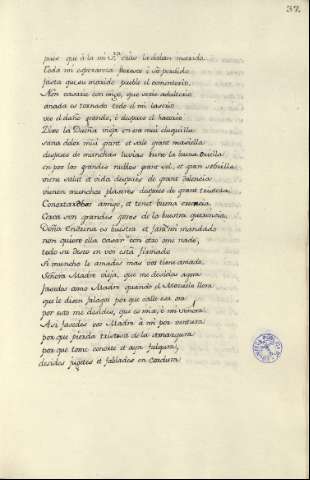 37.
pues que à la mi S.ra cràs le dàban marido.
Toda mi esperanza perece i só perdido
fasta qu su marido pueble el cementerio.
Non casaria con migo, que seria adulterio
anada es tornado todo el mi laserio
veo el daño grande, i despues el haserio
Dixo la Dueña vieja en ora muí chiquilla
sana dolor muí grant et sale grant masiella
despues de munchas luvias viene la buena Orilla
en pos los grandes nublos grant sol, et gran sobriella
viene salut et vida despues de grant dolencia
vienen munchos plaseres despues de grant tristeza
Conortadbos amigo, et tened buena creencia
Cerca son grandes gozos de la buestra querencia
Doña Endrina es buestra et farà mi mandado
non quiere ella casar con otro ome nado,
todo su deseo en vos está firmado
Si muncho le amades mas vos tiene amado.
Señora Madre vieja, que me desides agora
fasedes como Madre quando el Mozuelo llora
que le disen falagos por que calle esa ora
por esto me desides, que es mia, i mi señora
Así fasedes vos Madre à mí por ventura
por que pierda tristeza de la amargura
por que tome conorte et aya folgura,
desides juguetes et fablades en cordura